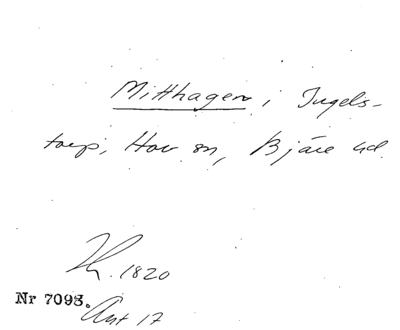 Mitthagen i Ingels-
torp, Hov sn, Bjäre hd
Lh. 1820
Nr 7093.
Ant 17